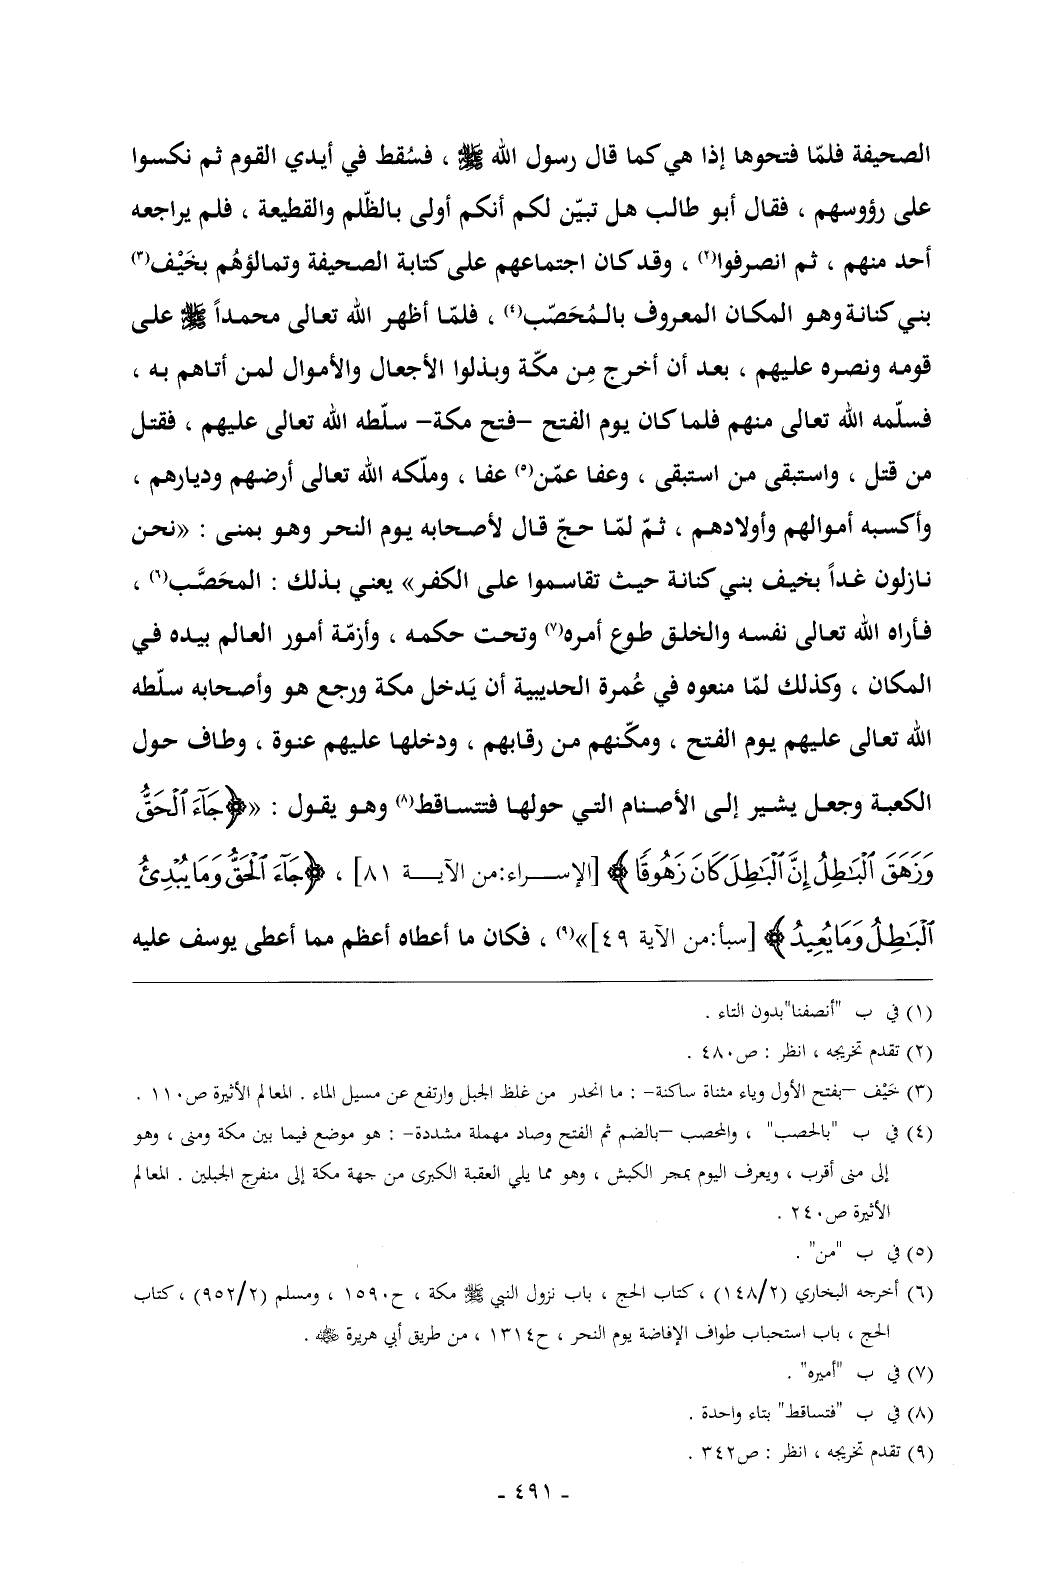 الصحيفة فلمّا فتحوها إذا هي كما قال رسول الله ﷺ ، فسُقط في أيدي القوم ثم نكسوا
على رؤوسهم ، فقال أبو طالب هل تبيّن لكم أنكم أولى بالظّلم والقطيعة ، فلم يراجعه
أحد منهم ، ثم انصرفوا(٢) ، وقد كان اجتماعهم على كتابة الصحيفة وتمالؤهُم بخَيْف(٣)
بني كنانة وهو المكان المعروف بالمُحَصّب(٤) ، فلمّا أظهر الله تعالى محمداً ﷺ على
قومه ونصره عليهم ، بعد أن أخرج مِن مكّة وبذلوا الأجعال والأموال لمن أتاهم به ،
فسلّمه الله تعالى منهم فلما كان يوم الفتح –فتح مكة– سلطه الله تعالى عليهم ، فقتل
من قتل ، واستبقى من استبقى ، وعفا عمّن(٥) عفا ، وملّكه الله تعالى أرضهم وديارهم ،
وأكسبه أموالهم وأولادهم ، ثمّ لمّا حجّ قال لأصحابه يوم النحر وهو بمنى : «نحن
نازلون غداً بخيف بني كنانة حيث تقاسموا على الكفر» يعني بذلك : المحَصَّب(٦) ،
فأراه الله تعالى نفسه والخلق طوع أمره(٧) وتحت حكمه ، وأزمّة أمور العالم بيده في
المكان ، وكذلك لمّا منعوه في عُمرة الحديبية أن يَدخل مكة ورجع هو وأصحابه سلّطه
الله تعالى عليهم يوم الفتح ، ومكّنهم من رقابهم ، ودخلها عليهم عنوة ، وطاف حول
الكعبة وجعل يشير إلى الأصنام التي حولها فتتساقط(٨) وهو يقول : «﴿جَآءَ ٱلْحَقُّ
وَزَهَقَ ٱلْبَٰطِلُ إِنَّ ٱلْبَٰطِلَ كَانَ زَهُوقًا﴾ [الإسراء:من الآية ٨١] ، ﴿جَآءَ ٱلْحَقُّ وَمَا يُبْدِئُ
ٱلْبَٰطِلُ وَمَا يُعِيدُ﴾ [سبأ:من الآية ٤٩]»(٩) ، فكان ما أعطاه أعظم مما أعطى يوسف عليه
(١) في ب "أنصفنا"بدون التاء .
(٢) تقدم تخريجه ، انظر : ص٤٨٠ .
(٣) خَيْف –بفتح الأول وياء مثناة ساكنة– : ما انحدر من غلظ الجبل وارتفع عن مسيل الماء . المعالم الأثيرة ص١١٠ .
(٤) في ب "بالحصب" ، والمحصب –بالضم ثم الفتح وصاد مهملة مشددة– : هو موضع فيما بين مكة ومنى ، وهو
إلى منى أقرب ، ويعرف اليوم بمجر الكبش ، وهو مما يلي العقبة الكبرى من جهة مكة إلى منفرج الجبلين . المعالم
الأثيرة ص٢٤٠ .
(٥) في ب "من" .
(٦) أخرجه البخاري (١٤٨/٢) ، كتاب الحج ، باب نزول النبي ﷺ مكة ، ح١٥٩٠ ، ومسلم (٩٥٢/٢) ، كتاب
الحج ، باب استحباب طواف الإفاضة يوم النحر ، ح١٣١٤ ، من طريق أبي هريرة رضي الله عنه .
(٧) في ب "أميره" .
(٨) في ب "فتساقط" بتاء واحدة .
(٩) تقدم تخريجه ، انظر : ص٣٤٢ .
- ٤٩١ -